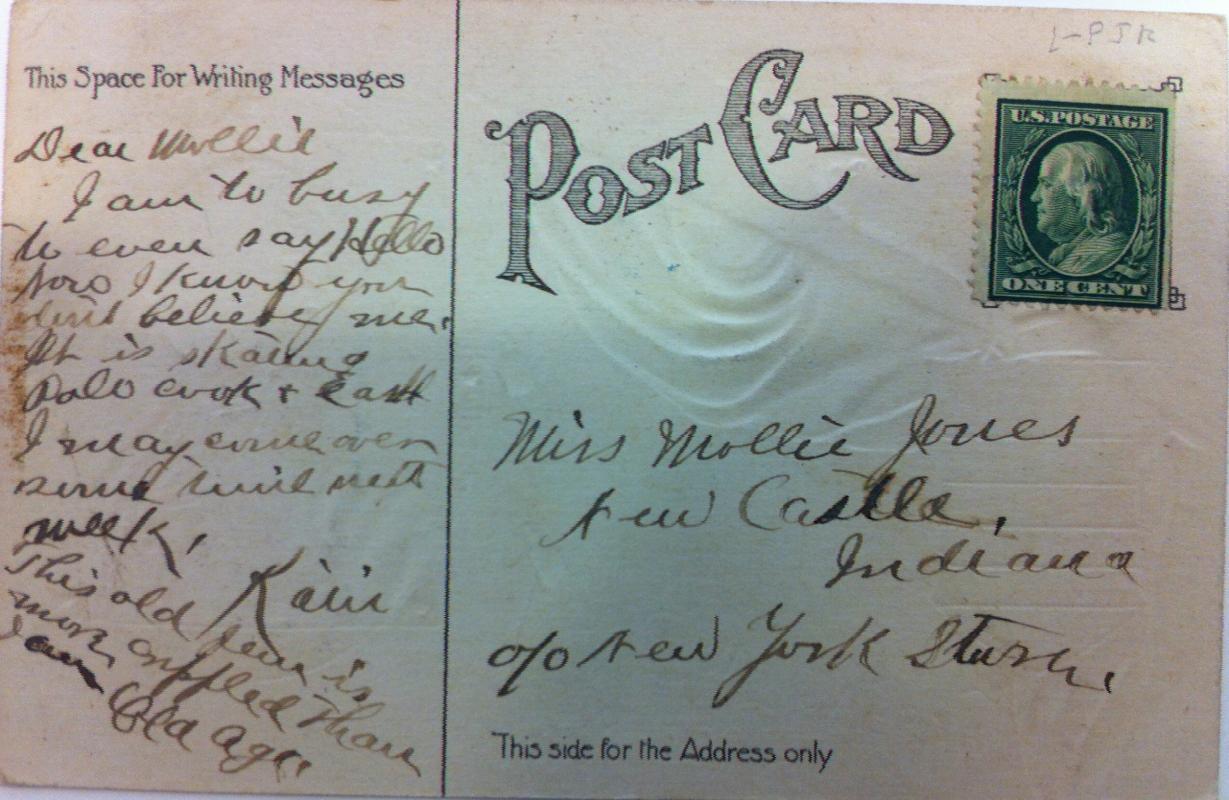 This Space For Writing Messages
Dear Mollie
I am to busy
to even say Hello
now I know you
dont believe me.
It is skating
Polo cook &
I may come over
some time next
week,
Kain
This old pen is
more crippled than
I am
Old Age.
POST CARD
U.S. POSTAGE
ONE CENT
Miss Mollie Jones
New Castle,
Indiana
c/o New York Store.
This side for the Address only